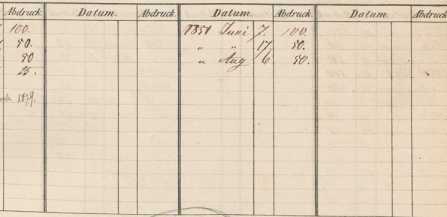 Abdruck. Datum. Abdruck. Datum. Abdruck. Datum. Abdruck.
100. 1851 Juni 7. 100.
50. " " 17. 50.
50 " Aug 6. 50.
25.